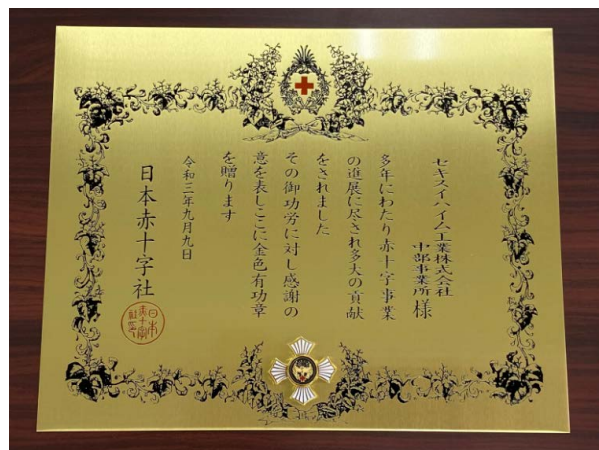 セキスイハイム工業株式会社
中部事業所 様
多年にわたり赤十字事業
の進展に尽され多大の貢献
をされました
その御功労に対し感謝の
意を表しここに金色有功章
を贈ります
令和三年九月九日
日本赤十字社
日本
赤十字
社印